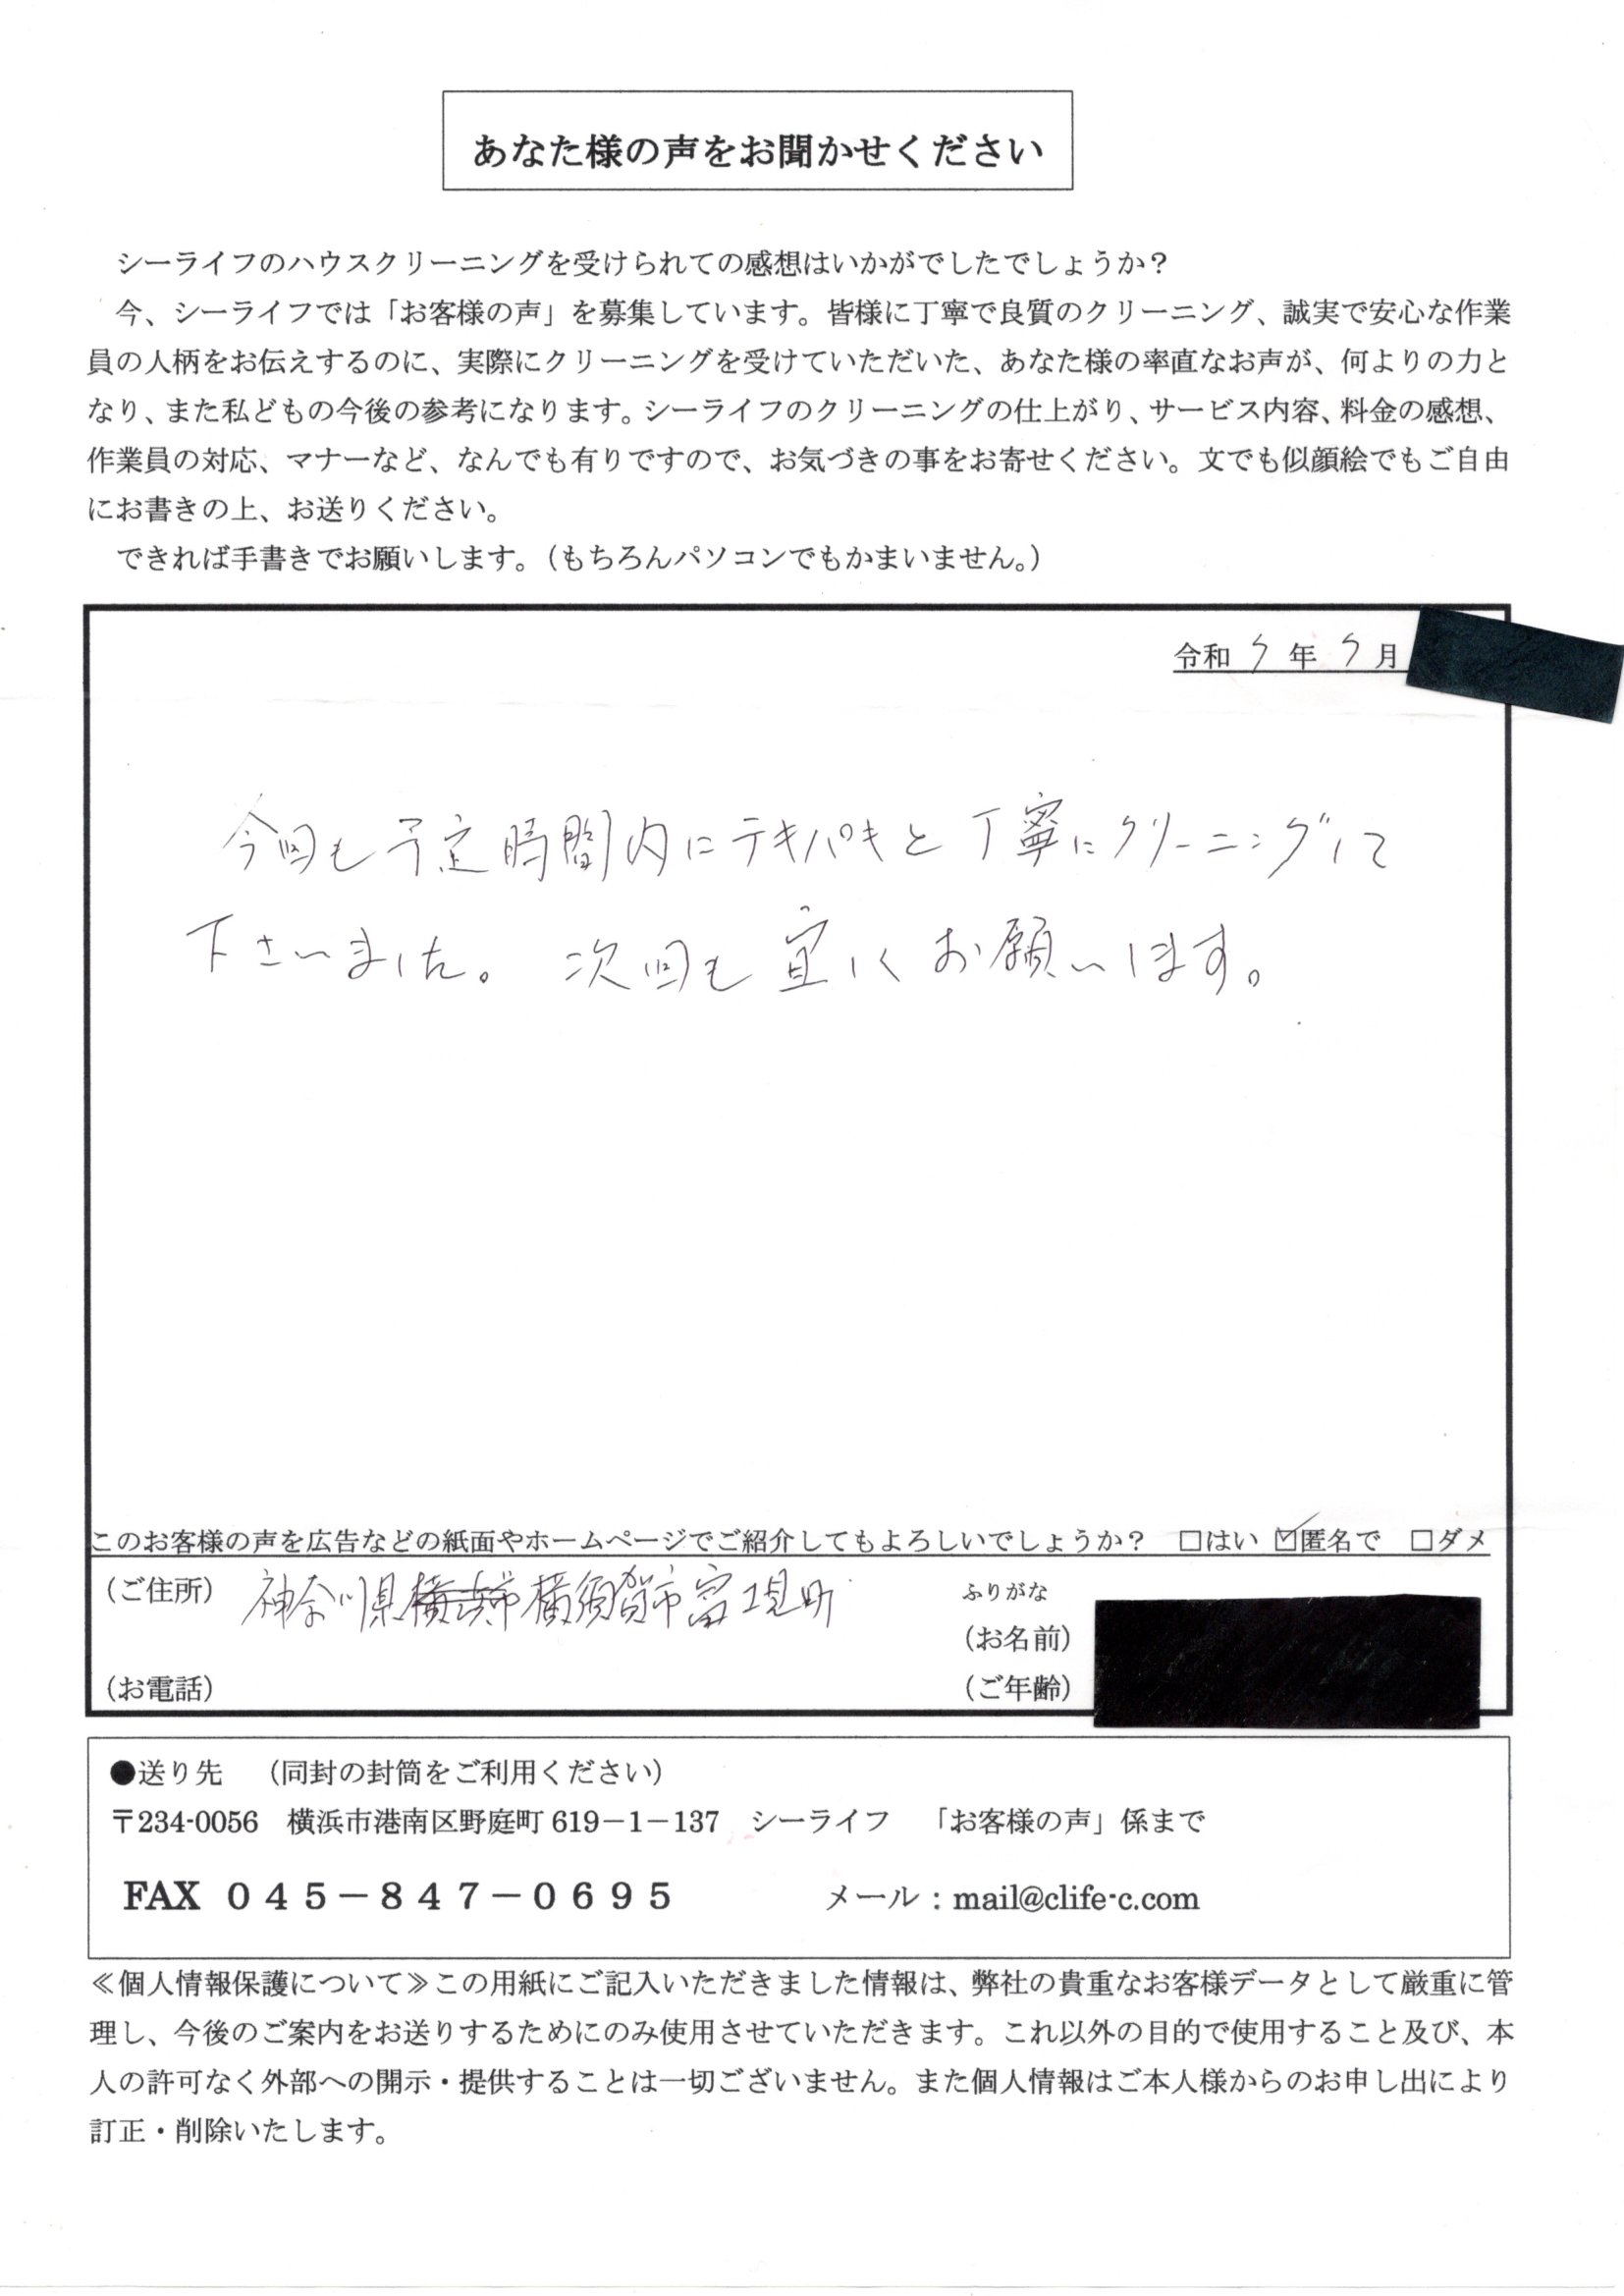 あなた様の声をお聞かせください
シーライフのハウスクリーニングを受けられての感想はいかがでしたでしょうか？
今、シーライフでは「お客様の声」を募集しています。皆様に丁寧で良質のクリーニング、誠実で安心な作業
員の人柄をお伝えするのに、実際にクリーニングを受けていただいた、あなた様の率直なお声が、何よりの力と
なり、また私どもの今後の参考になります。シーライフのクリーニングの仕上がり、サービス内容、料金の感想、
作業員の対応、マナーなど、なんでも有りですので、お気づきの事をお寄せください。文でも似顔絵でもご自由
にお書きの上、お送りください。
できれば手書きでお願いします。（もちろんパソコンでもかまいません。）
令和 5 年 5 月
今回も予定時間内にテキパキと丁寧にクリーニングして
下さいました。次回も宜しくお願いします。
このお客様の声を広告などの紙面やホームページでご紹介してもよろしいでしょうか？ □はい ☑匿名で □ダメ
（ご住所） 神奈川県横浜市横須賀市富士見町 ふりがな
（お名前）
（お電話） （ご年齢）
●送り先 （同封の封筒をご利用ください）
〒234-0056 横浜市港南区野庭町 619－1－137 シーライフ 「お客様の声」係まで
FAX ０４５－８４７－０６９５ メール：mail@clife-c.com
≪個人情報保護について≫この用紙にご記入いただきました情報は、弊社の貴重なお客様データとして厳重に管
理し、今後のご案内をお送りするためにのみ使用させていただきます。これ以外の目的で使用すること及び、本
人の許可なく外部への開示・提供することは一切ございません。また個人情報はご本人様からのお申し出により
訂正・削除いたします。